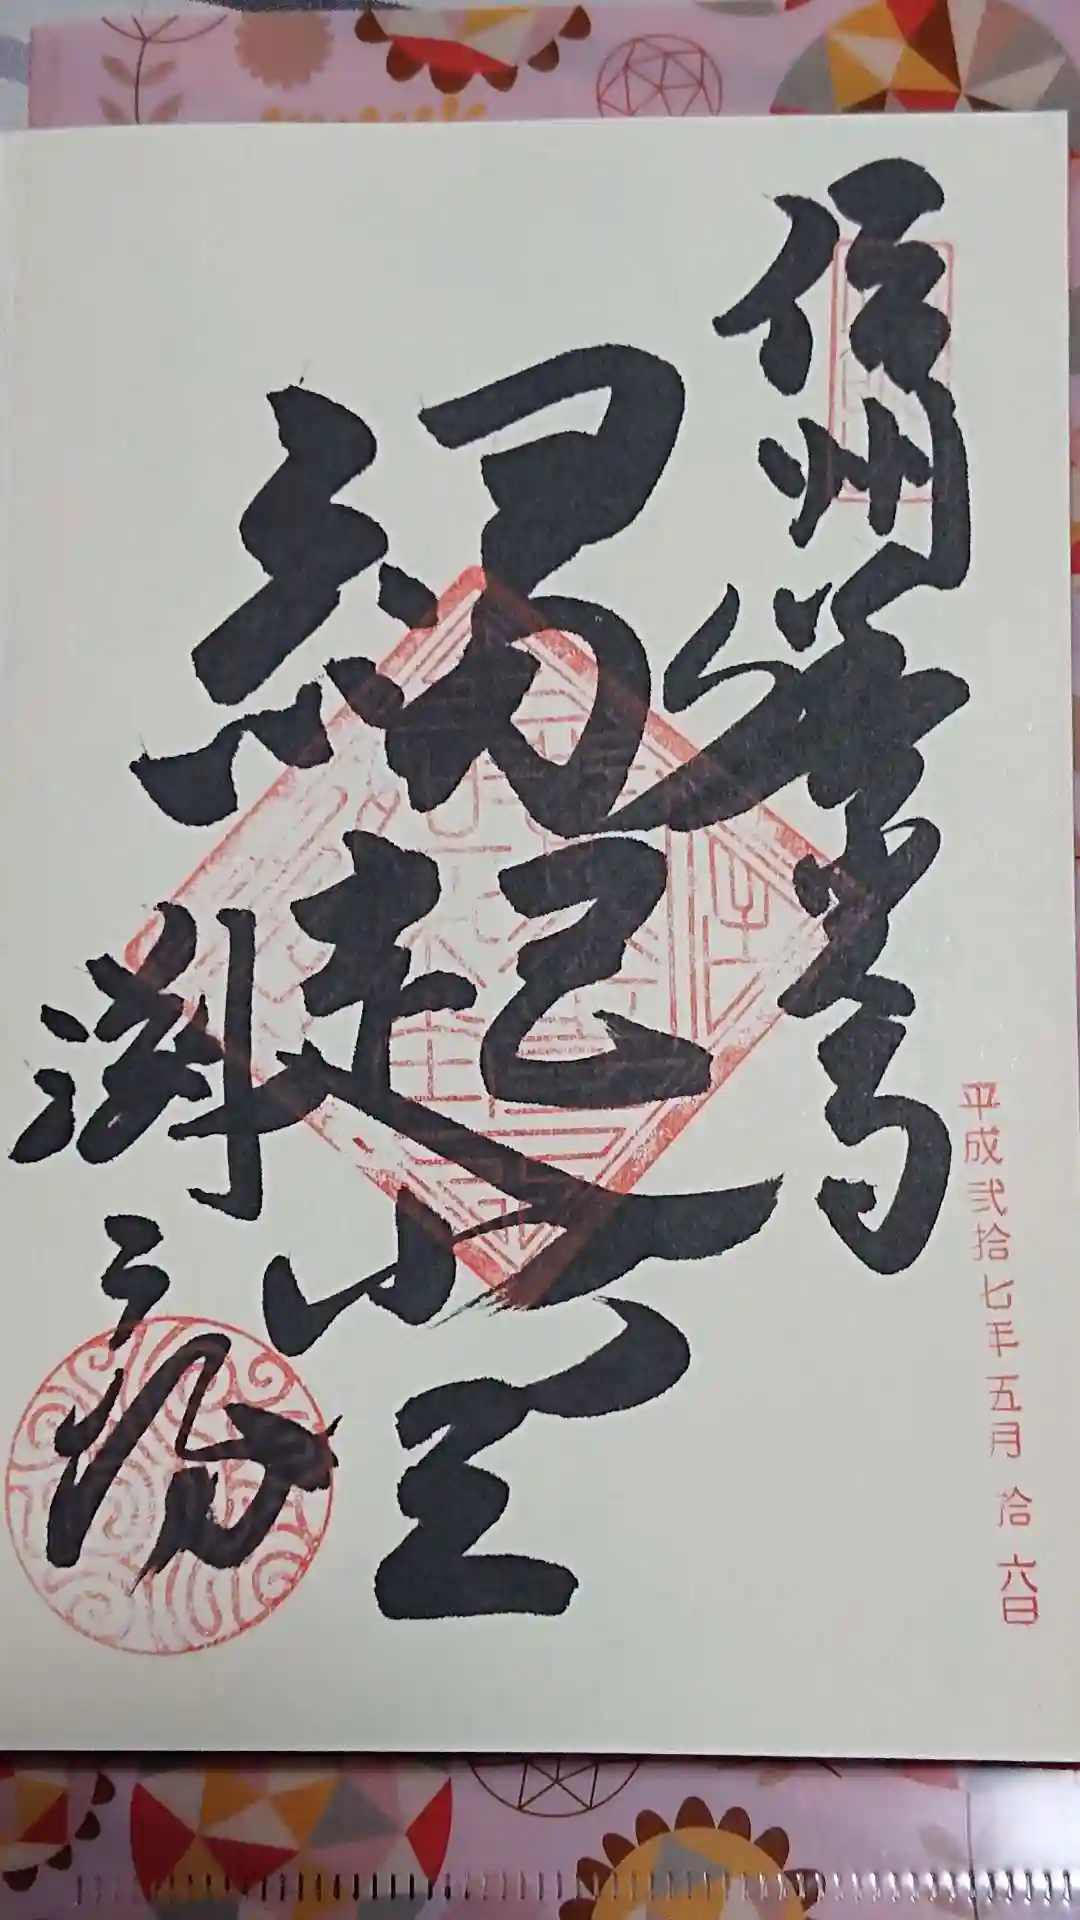 信州善光寺
縁起堂
渕之坊
平成弐拾七年五月拾六日